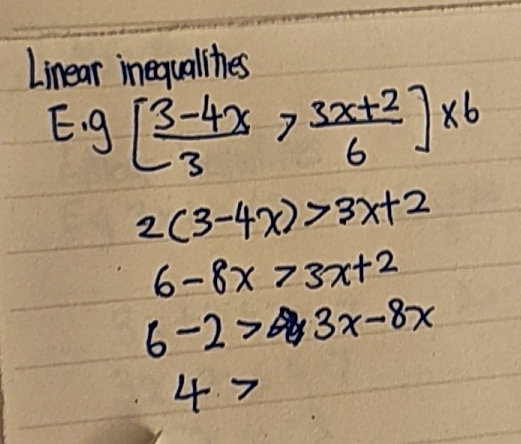 Linear inequalities
E.g [3-4x/3 > 3x+2/6] x6
2(3-4x) > 3x+2
6-8x > 3x+2
6-2 > 3x-8x
4 >